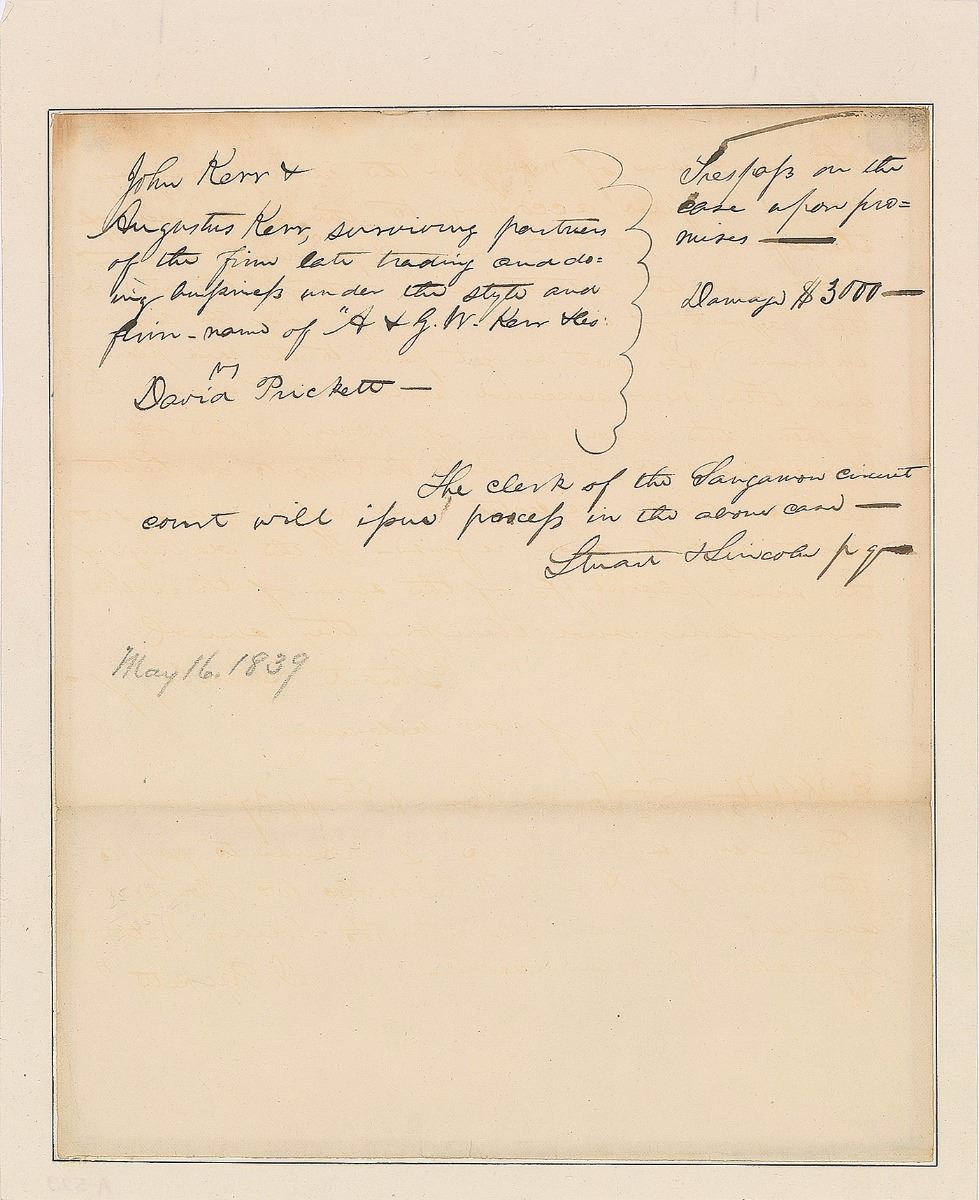 John Kerr &
Augustus Kerr, surviving partners
of the firm late trading and do=
ing business under the style and
firm-name of "A & G. W. Kerr & Co.
vs
David Prickett —
Trespass on the
case upon pro=
mises —
Damage $3000 —
The clerk of the Sangamon circuit
court will issue process in the above case —
Stuart & Lincoln p q —
May 16. 1839